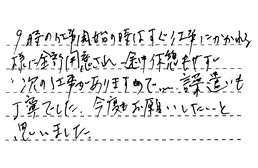 9時の仕事開始の時はすぐ仕事にかかれる
様に全部用意され 一金も休憩もせず
次の仕事がありますので… 言葉遣いも
丁寧でした。今度もお願いしたいと
思いました。